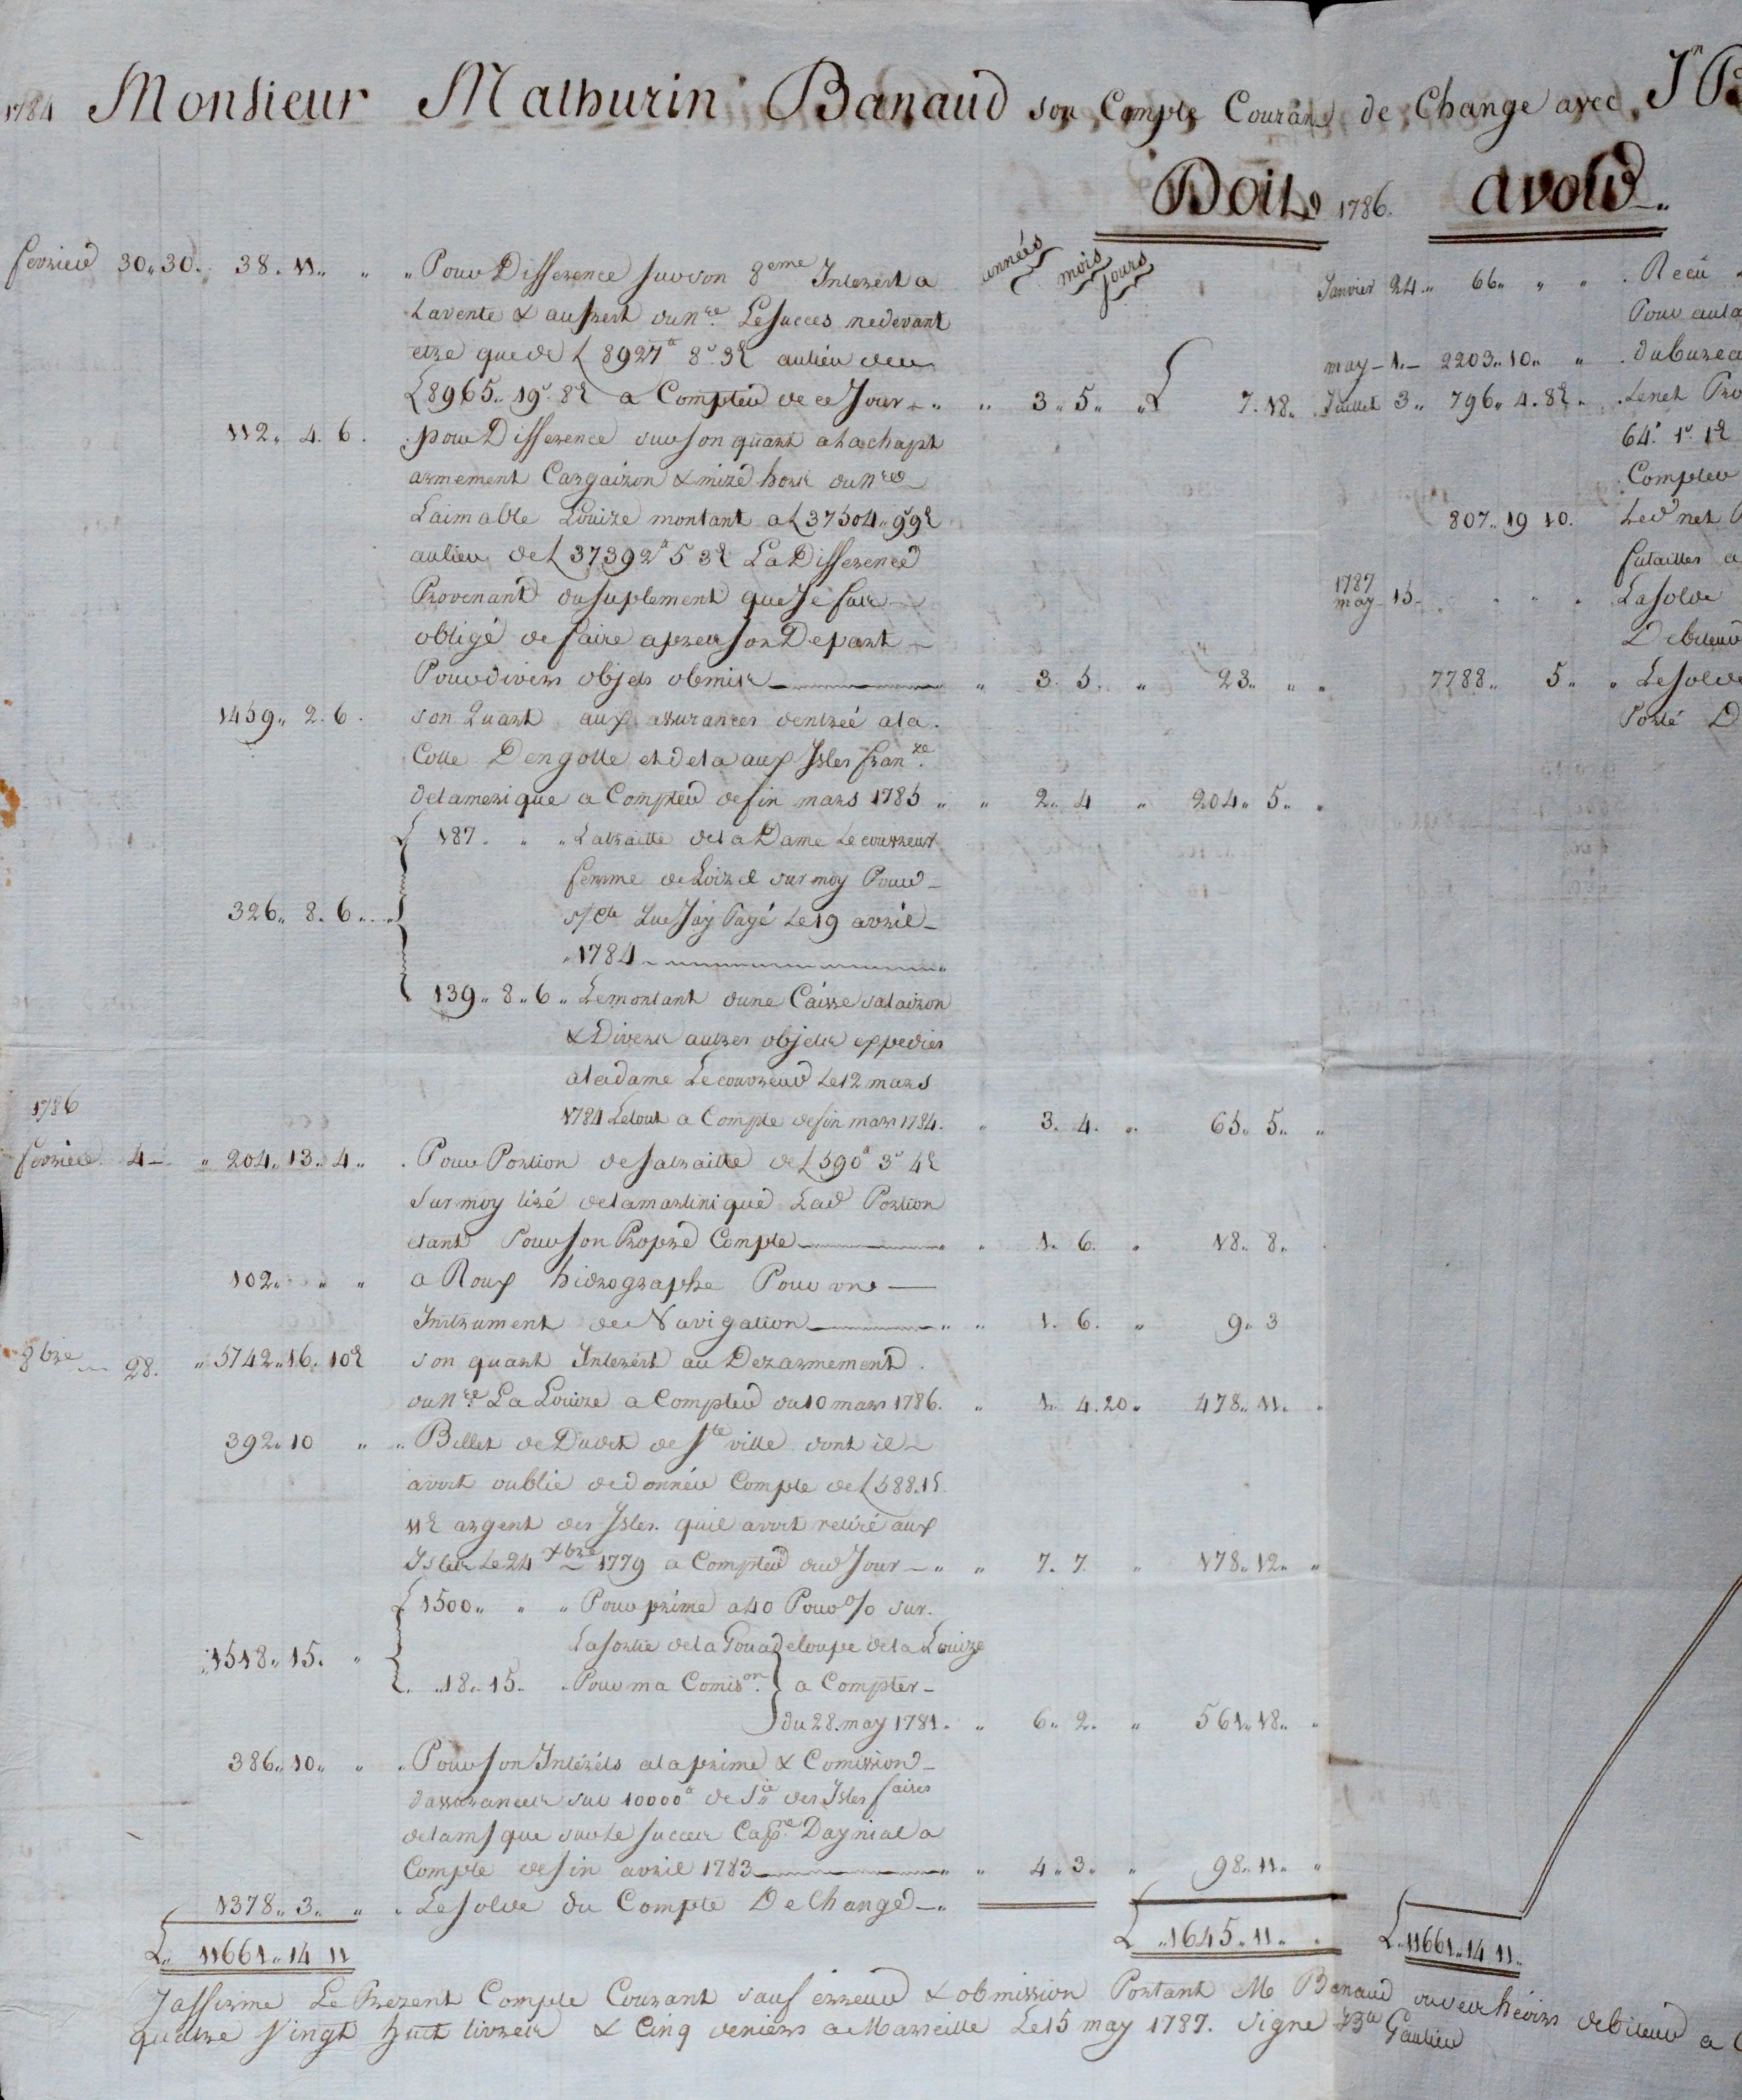 1784 Monsieur Mathurin Banaud son Compte Courant de Change avec Jn B
Doit 1786. avoir
années mois jours
fevrier 30.. 30. 38. 11.. .. .. Pour Difference sur son 8eme Interest a
La vente & au fret du nre. Le Succes ne devant
etre que de L 8927# 8s 3d au lieu de
L 8965.. 19s. 8d a Compter de ce Jour .. 3.. 5.. .. 7. 18..
112.. 4. 6. pour Difference sur son quart a Lachapt
armement Cargaizon & mize hors du nre
Laimable Louize montant a L 37504.. 9s 9d
au lieu de L 37392# 5 3d La Difference
Provenant du suplement que Je fus
obligé de faire apres son Depart
Pour divers objets obmis .. 3. 5. .. 23.. .. ..
1459.. 2. 6. son Quart aux assurances d'entreé a la
Cotte Dengolle et de la aux Isles franze.
de lamerique a Compter de fin mars 1785 .. .. 2.. 4 .. 204.. 5.. ..
187. .. .. La traitte de la Dame Le couvreur
femme de Loizel sur moy Pour
326.. 8. 6. s/cte que Jay Payé Le 19 avril
1784
139.. 8.. 6 .. Le montant dune Caisse salaizon
& Divers autres objets expedies
a la dame Le couvreur Le 12 mars
1784 Le tout a Compte de fin mars 1784. .. 3. 4. .. 65.. 5.. ..
1786
fevrier 4 .. 204.. 13.. 4.. . Pour Portion de sa traitte de L 590# 3s 4d
sur moy tiré de la martinique Lad Portion
etant Pour son Propre Compte .. 1. 6. .. 18.. 8..
102.. .. .. a Roux hidrographe Pour un
Instrument de Navigation .. .. 1. 6. .. 9.. 3
8bre 28. .. 5742.. 16. 10d son quart Interêt au Dezarmement
du nre La Louize a Compter du 10 mars 1786. .. 1. 4. 20.. 478.. 11. ..
392.. 10 .. .. Billet de Dudet de Ste ville dont il
avoit oublié de donner Compte de L 588. 15
11d argent des Isles quil avoit retiré aux
Isles Le 24 Xbre 1779 a Compter dud Jour .. .. 7. 7. .. 178.. 12.. ..
1500.. .. .. Pour prime a 40 Pour % sur
La sortie de la Gouadeloupe de la Louize
1518.. 15. .. ..18.. 15. . Pour ma Comison. a Compter
du 28. may 1781. .. 6.. 2. .. 561.. 18.. ..
386.. 10.. .. . Pour son Intérêts a la prime & Comission
dassurances sur 10000# de sie des Isles faires
de lamsque sur le Succes Capne. Daynial a
Compte de fin avril 1783 .. .. 4.. 3. .. 98.. 11.. ..
1378.. 3.. .. . Le solde du Compte De Change
L.. 11661.. 14 11
L ..1645.. 11.. .
Janvier 24.. 66.. .. .. . Recu
Pour auta
may 1. 2203.. 10.. .. . du burea
Juillet 3.. 796.. 4. 8d . Le net Pro
64#. 1s. 1d
Compter
807.. 19 10. Led net
futailles a
1787
may 15 . . . . La solde
Debiteur
7788.. 5.. .. Le solde
Porté D
L.. 11661.. 14 11..
Jaffirme Le Prezent Compte Courant sauf erreur & obmission Portant Mr Banaud ou veus héoirs debiteur a
quatre Vingt huit livres & Cinq deniers a Marseille Le 15 may 1787. Signé Gautier